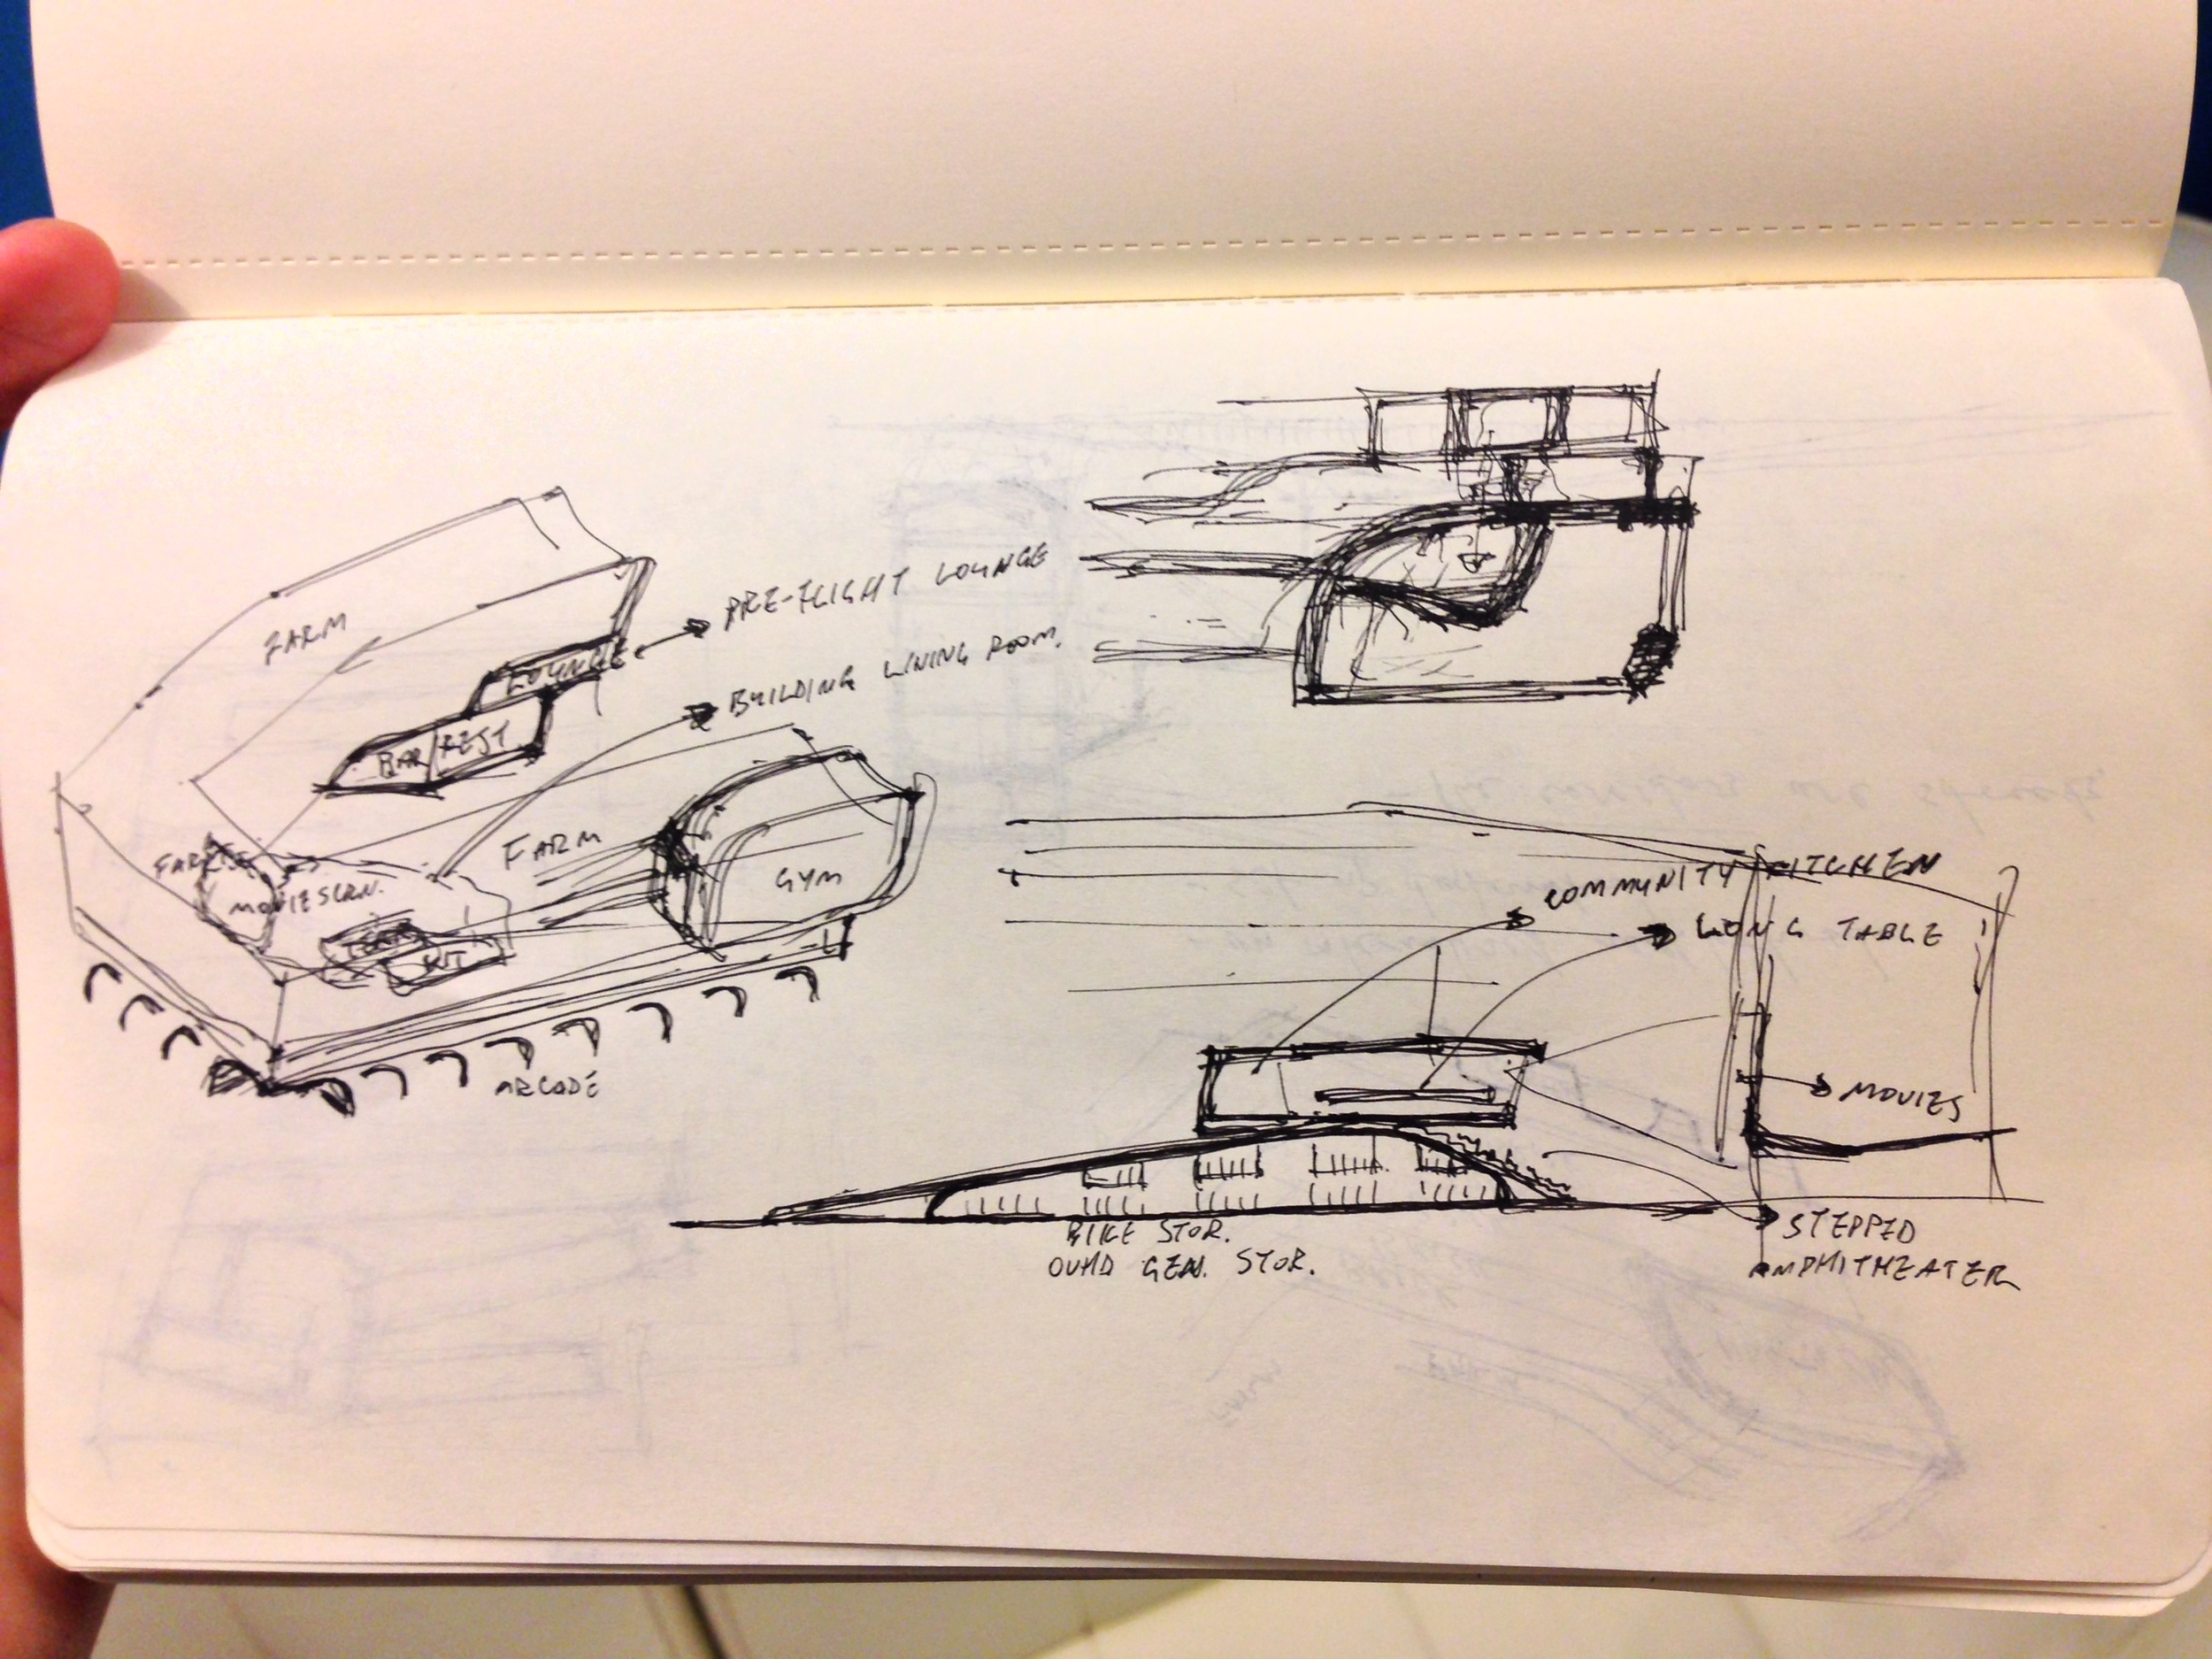 FARM
PRE-FLIGHT LOUNGE
LOUNGE
BUILDING LIVING ROOM.
BAR REST
FARM
GYM
MOVIE SCRN.
KIT
ARCADE
COMMUNITY KITCHEN
LONG TABLE
MOVIES
BIKE STOR.
GEN. STOR.
STEPPED
AMPHITHEATER